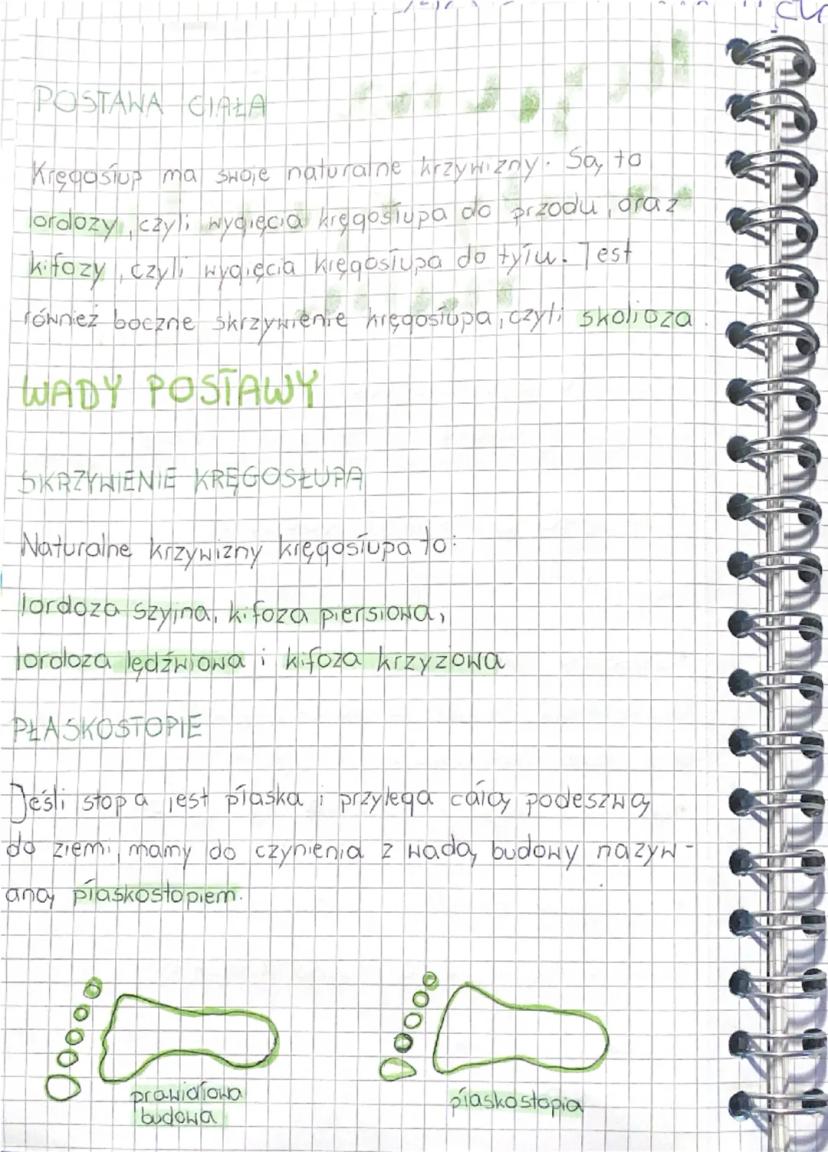 POSTAWA CIAŁA
Kręgosłup ma swoje naturalne krzywizny. Są to
lordozy, czyli wygięcia kręgosłupa do przodu, oraz
kifozy, czyli wygięcia kręgosłupa do tyłu. Jest
również boczne skrzywienie kręgosłupa, czyli skolioza.
WADY POSTAWY
SKRZYWIENIE KRĘGOSŁUPA
Naturalne krzywizny kręgosłupa to:
lordoza szyjna, kifoza piersiowa,
lordoza lędźwiowa i kifoza krzyzowa
PŁASKOSTOPIE
Jeśli stopa jest płaska i przylega całą podeszwą
do ziemi, mamy do czynienia z wadą budowy nazyw-
aną płaskostopiem.
prawidłowa
budowa
płaskostopia